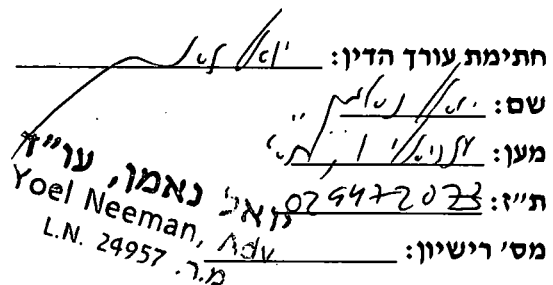 חתימת עורך הדין: יואל נאמן
שם: יואל נאמן
מען:
ת״ז: 029472073
מס׳ רישיון:
יואל נאמן, עו״ד
Yoel Neeman, Adv
L.N. 24957 מ.ר.